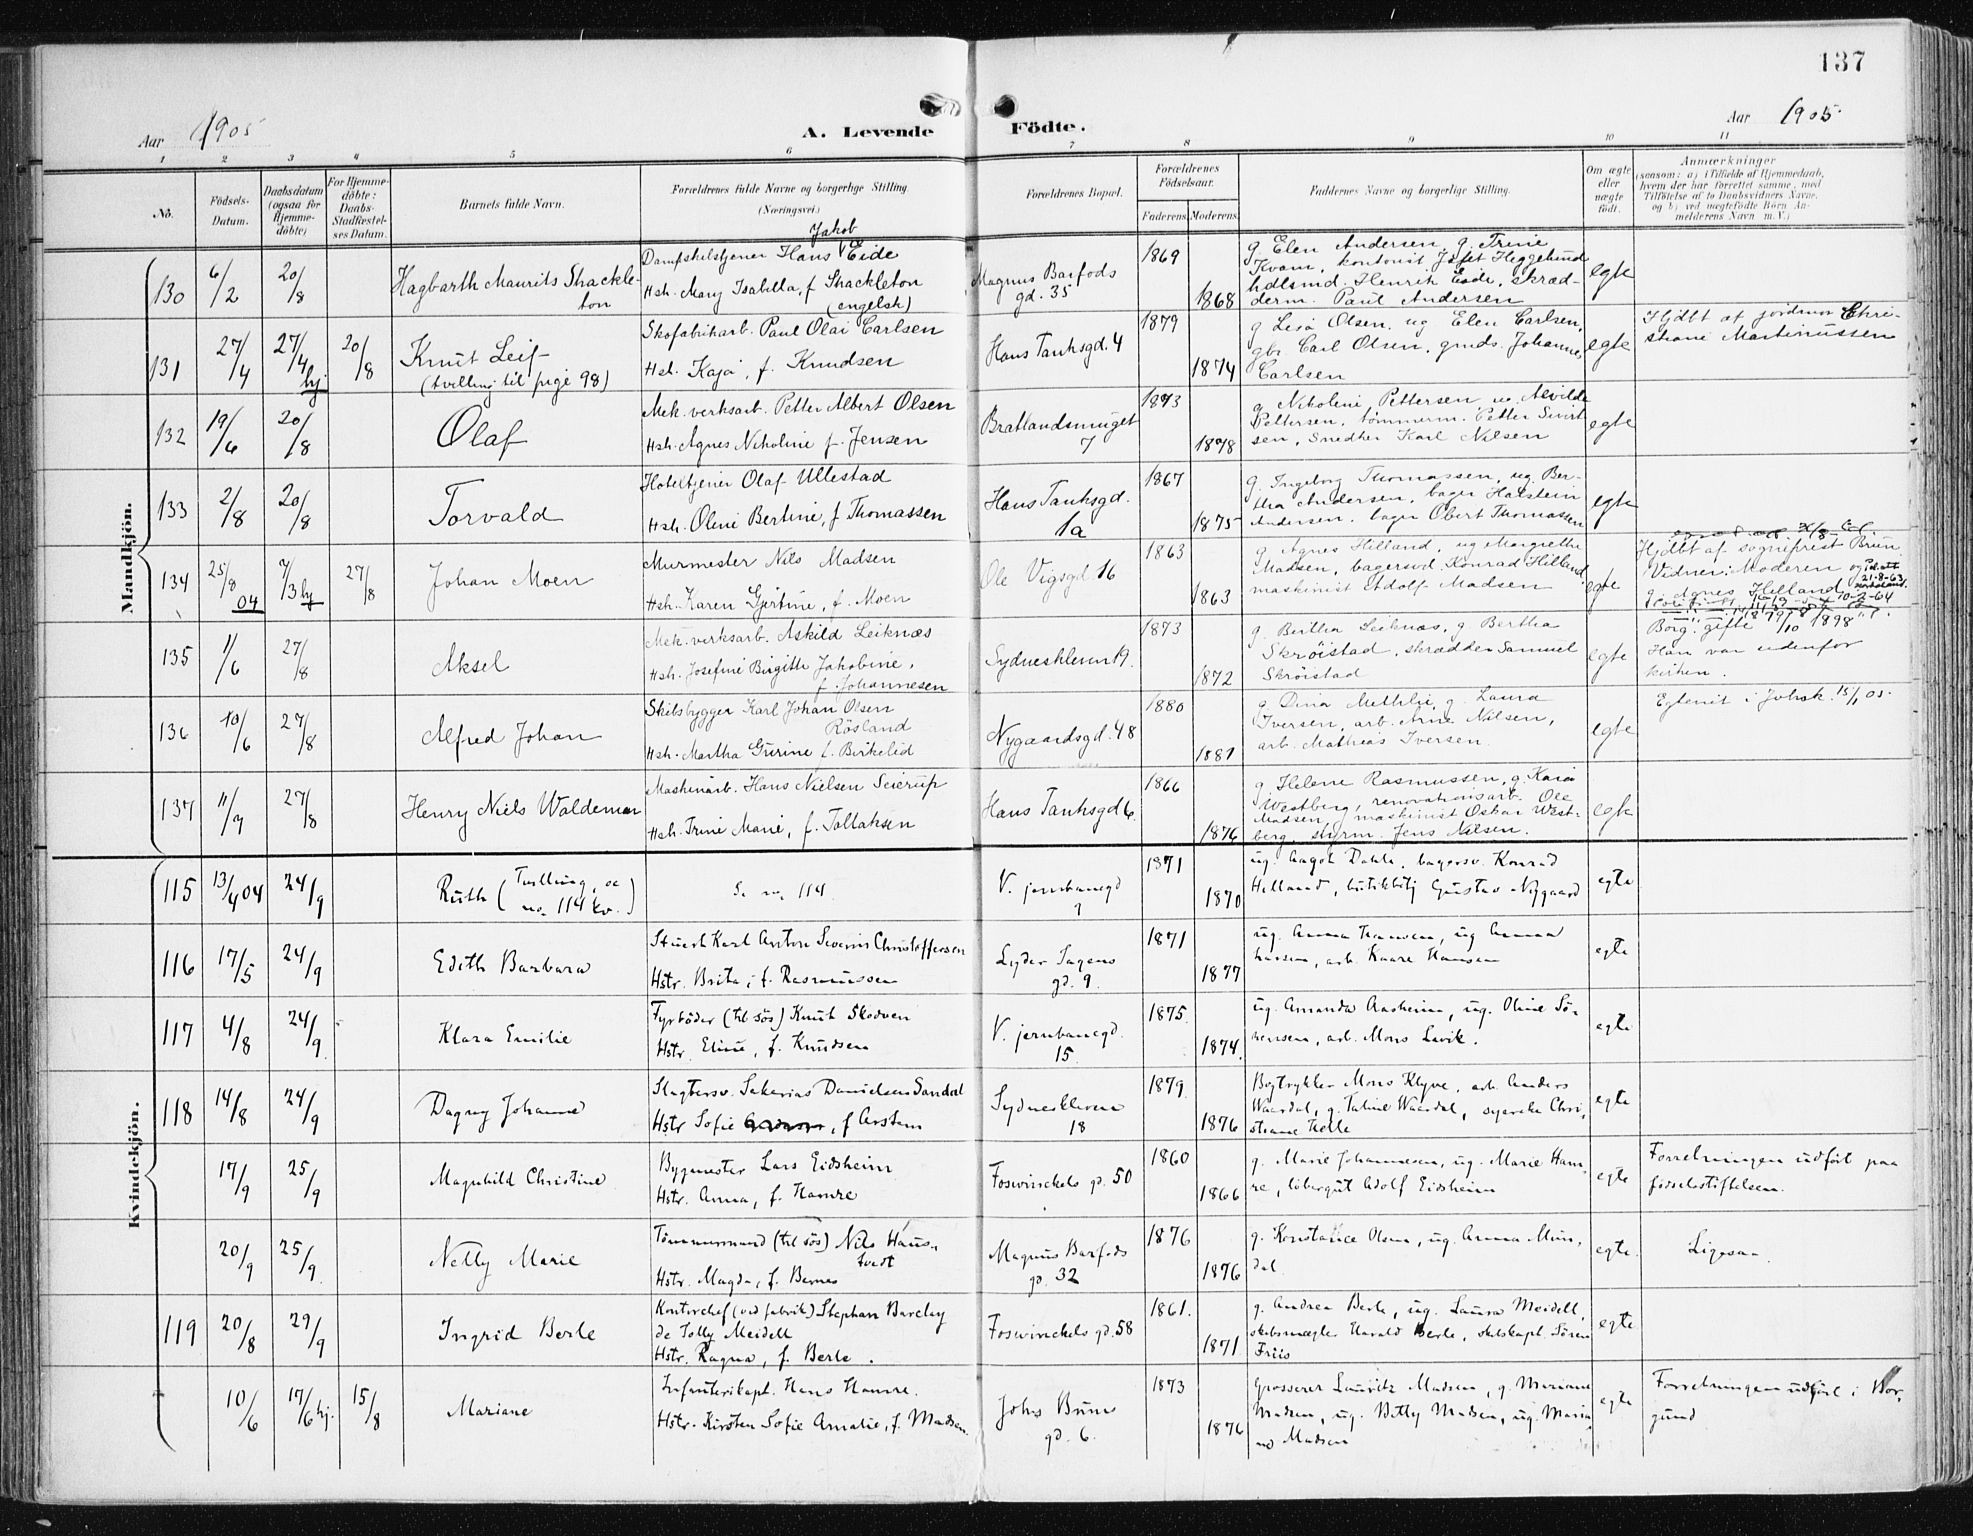 137
Aar 1905
A. Levende Födte.
Aar 1905.
1 2 3 4 5 6 7 8 9 10 11
No.
Födsels-Datum.
Daabsdatum (ogsaa for Hjemme-döbte)
For Hjemme-döbte: Daabs-Stadfæstel-ses Datum.
Barnets fulde Navn.
Forældrenes fulde Navne og borgerlige Stilling. (Næringsvei.)
Forældrenes Bopæl.
Forældrenes Födselsaar.
Faderens Moderens
Faddernes Navne og borgerlig Stilling.
Om ægte eller uægte födt.
Anmærkninger
(saasom: a) i Tilfælde af Hjemmedaab,
hvem der har forrettet samme, med
Tilföielse af to Daabsvidners Navne,
og b) ved uægtefödte Börn An-
melderens Navn m. V.)
Mandkjön.
130 6/2 20/8 Hagbarth Maurits Shackle-
ton
Jakob
Dampskibstjener Hans Eide
Hst. Mary Isabella, f. Shackleton
(engelsk)
Magnus Barfods
gd. 35
1869
1868
g. Elen Andersen, g. Trine
Kvam, kontorist Jofet Heggelund
hdlsmd. Henrik Eide, skræd-
derm. Paul Andersen
egte
131 27/4 27/4 hj 20/8 Knut Leif
(tvilling til pige 98)
Skofabrikarb. Paul Olai Carlsen
Hst. Kaja, f. Knudsen
Hans Tanksgd. 4
1879
1874
g Lesa Olsen, ug Elen Carlsen,
gbr. Carl Olsen, gmds. Johanne
Carlsen
egte
Hjdbt af jordmor Chri-
stiane Martinussen
132 19/6 20/8 Olaf
Mek. verksarb. Petter Albert Olsen
Hst. Agnes Nikoline f. Jensen
Bratlandsmuget
7
1873
1878
g Nikoline Pettersen, ug. Alvilde
Pettersen, tømmerm. Petter Sivert
sen, Smedker Karl Nilsen
egte
133 2/8 20/8 Torvald
Hoteltjener Olaf Ullestad
Hst. Oline Bertine, f Thomassen
Hans Tanksgd.
1a
1867
1875
g. Ingeborg Thomassen, ug. Ber-
tha Andersen, bager Halstein
Andersen, bager Obert Thomassen
egte
134 25/8 04 7/3 hj 27/8 Johan Moen
Murmester Nils Madsen
Hst. Karen Gjertine, f. Moen
Ole Vigsgd 16
1863
1863
g. Agnes Hilland, ug Margrethe
Madsen, bagersvd. Konrad Hilland,
maskinist Adolf Madsen
egte
Hjdbt af sogneprest Brun.
Vidner: Moderen og
g. Agnes Hilland
21-8-63
10-2-64
135 1/6 27/8 Aksel
Mek. verksarb. Askild Leiknæs
Hst. Josefine Birgitte Jakobine,
f. Johannesen
Sydneskleven 19.
1873
1872
g. Bertha Leiknæs, g. Bertha
Skröistad, skrædder Samuel
Skröistad
egte
Borg. gifte 9/10 1898
Han var udenfor
kirken.
136 10/6 27/8 Alfred Johan
Skibsbygger Karl Johan Olsen
Rösland
Hst. Martha Gurine f. Birkelid
Nygaardsgd. 48
1880
1881
g Dina Methlie, g. Laura
Iversen, arb. Arne Nilsen,
arb. Mathias Iversen.
egte
Egteviet i Johsk. 15/1 05.
137 11/7 27/8 Henry Niels Waldemar
Maskinarb. Hans Nielsen Seierup
Hst. Trine Marie, f. Tollaksen
Hans Tanksgd 6.
1866
1876
g. Helene Rasmussen, g. Kaia
Westberg, renovationsarb. Ole
Madsen, maskinist Oskar West-
berg, styrm. Jens Nilsen.
egte
Kvindekjön.
115 13/4 04 24/9 Ruth (Tvilling, se
no. 114 kv.)
Se no. 114
V. jernbanegd
7
1871
1870
ug. Aagot Dahle, bagersv. Konrad
Helland, butikbtj Gustav Nygaard
egte
116 17/5 24/9 Edith Barbara
Stuert Karl Anton Severin Christoffersen
Hstr. Brita, f. Rasmussen
Lyder Sagens
gd. 9.
1871
1877
ug. Anna Hansen, ug Anna
Larsen, arb. Kaare Hansen
egte
117 4/8 24/9 Klara Emilie
Fyrböder (til sös) Knut Skodven
Hstr. Eline, f. Knudsen
V. jernbanegd.
15.
1875.
1874.
ug. Amanda Aasheim, ug. Oline Sö-
rensen, arb. Mons Lavik.
egte
118 14/8 24/9 Dagny Johanne
Slagtersv. Sakarias Danielsen Sandal
Hstr Sofie, f Arstun
Sydneskleven
18
1879.
1876
Bogtrykker Mons Klyve, arb. Anders
Waardal, g. Taline Waardal, syerske Chri-
stiane Helle
egte
17/9 25/9 Magnhild Christine
Bygmester Lars Eidsheim
Hstr. Anna, f. Hamre
Foswinckels gd. 50
1860
1866
g. Marie Johannesen, ug. Marie Ham-
re, löbergut Adolf Eidsheim
egte
Forretningen udfört paa
födselsstiftelsen.
20/9 25/9 Nelly Marie
Tömmermand (til sös) Nils Haus-
tvedt
Hstr. Magda, f. Bernes
Magnus Barfods
gd. 32
1876
1876
g. Konstance Olsen, ug. Anna Mun-
dal.
egte.
Ligesaa
119 20/8 29/9 Ingrid Berle
Kontorchef (ved fabrik) Stephan Barclay
de Tolly Meidell
Hstr. Ragna, f. Berle.
Foswinckels gd. 58
1861.
1871
g. Andrea Berle, ug. Laura Meidell,
skibsmægler Harald Berle, skibskapt. Sören
Friis
egte
10/6 17/6 hj. 15/8 Mariane
Infanterikapt. Hans Hamre.
Hstr. Kirsten Sofie Amalie, f. Madsen.
Johs Bruns
gd. 6.
1873
1876
Grosserer Lauritz Madsen, g. Mariane
Madsen, ug. Betty Madsen, ug. Maria
Madsen
egte
Forretningen udfört i Bor-
gund